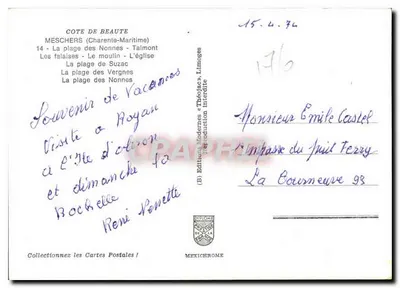 COTE DE BEAUTE
MESCHERS (Charente-Maritime)
14 - La plage des Nonnes - Talmont
Les falaises - Le moulin - L'église
La plage de Suzac
La plage des Vergnes
La plage des Nonnes
Souvenir de Vacances
Visite a Royan
a l'Ile d'oléron
et dimanche la
Rochelle
René Nenette
Collectionnez les Cartes Postales !
Editions Modernes « Théojac », Limoges
Reproduction interdite
MEXICHROME
15.4.74
176
Monsieur Emile Castel
Impasse du Jules Ferry
La Courneuve 93